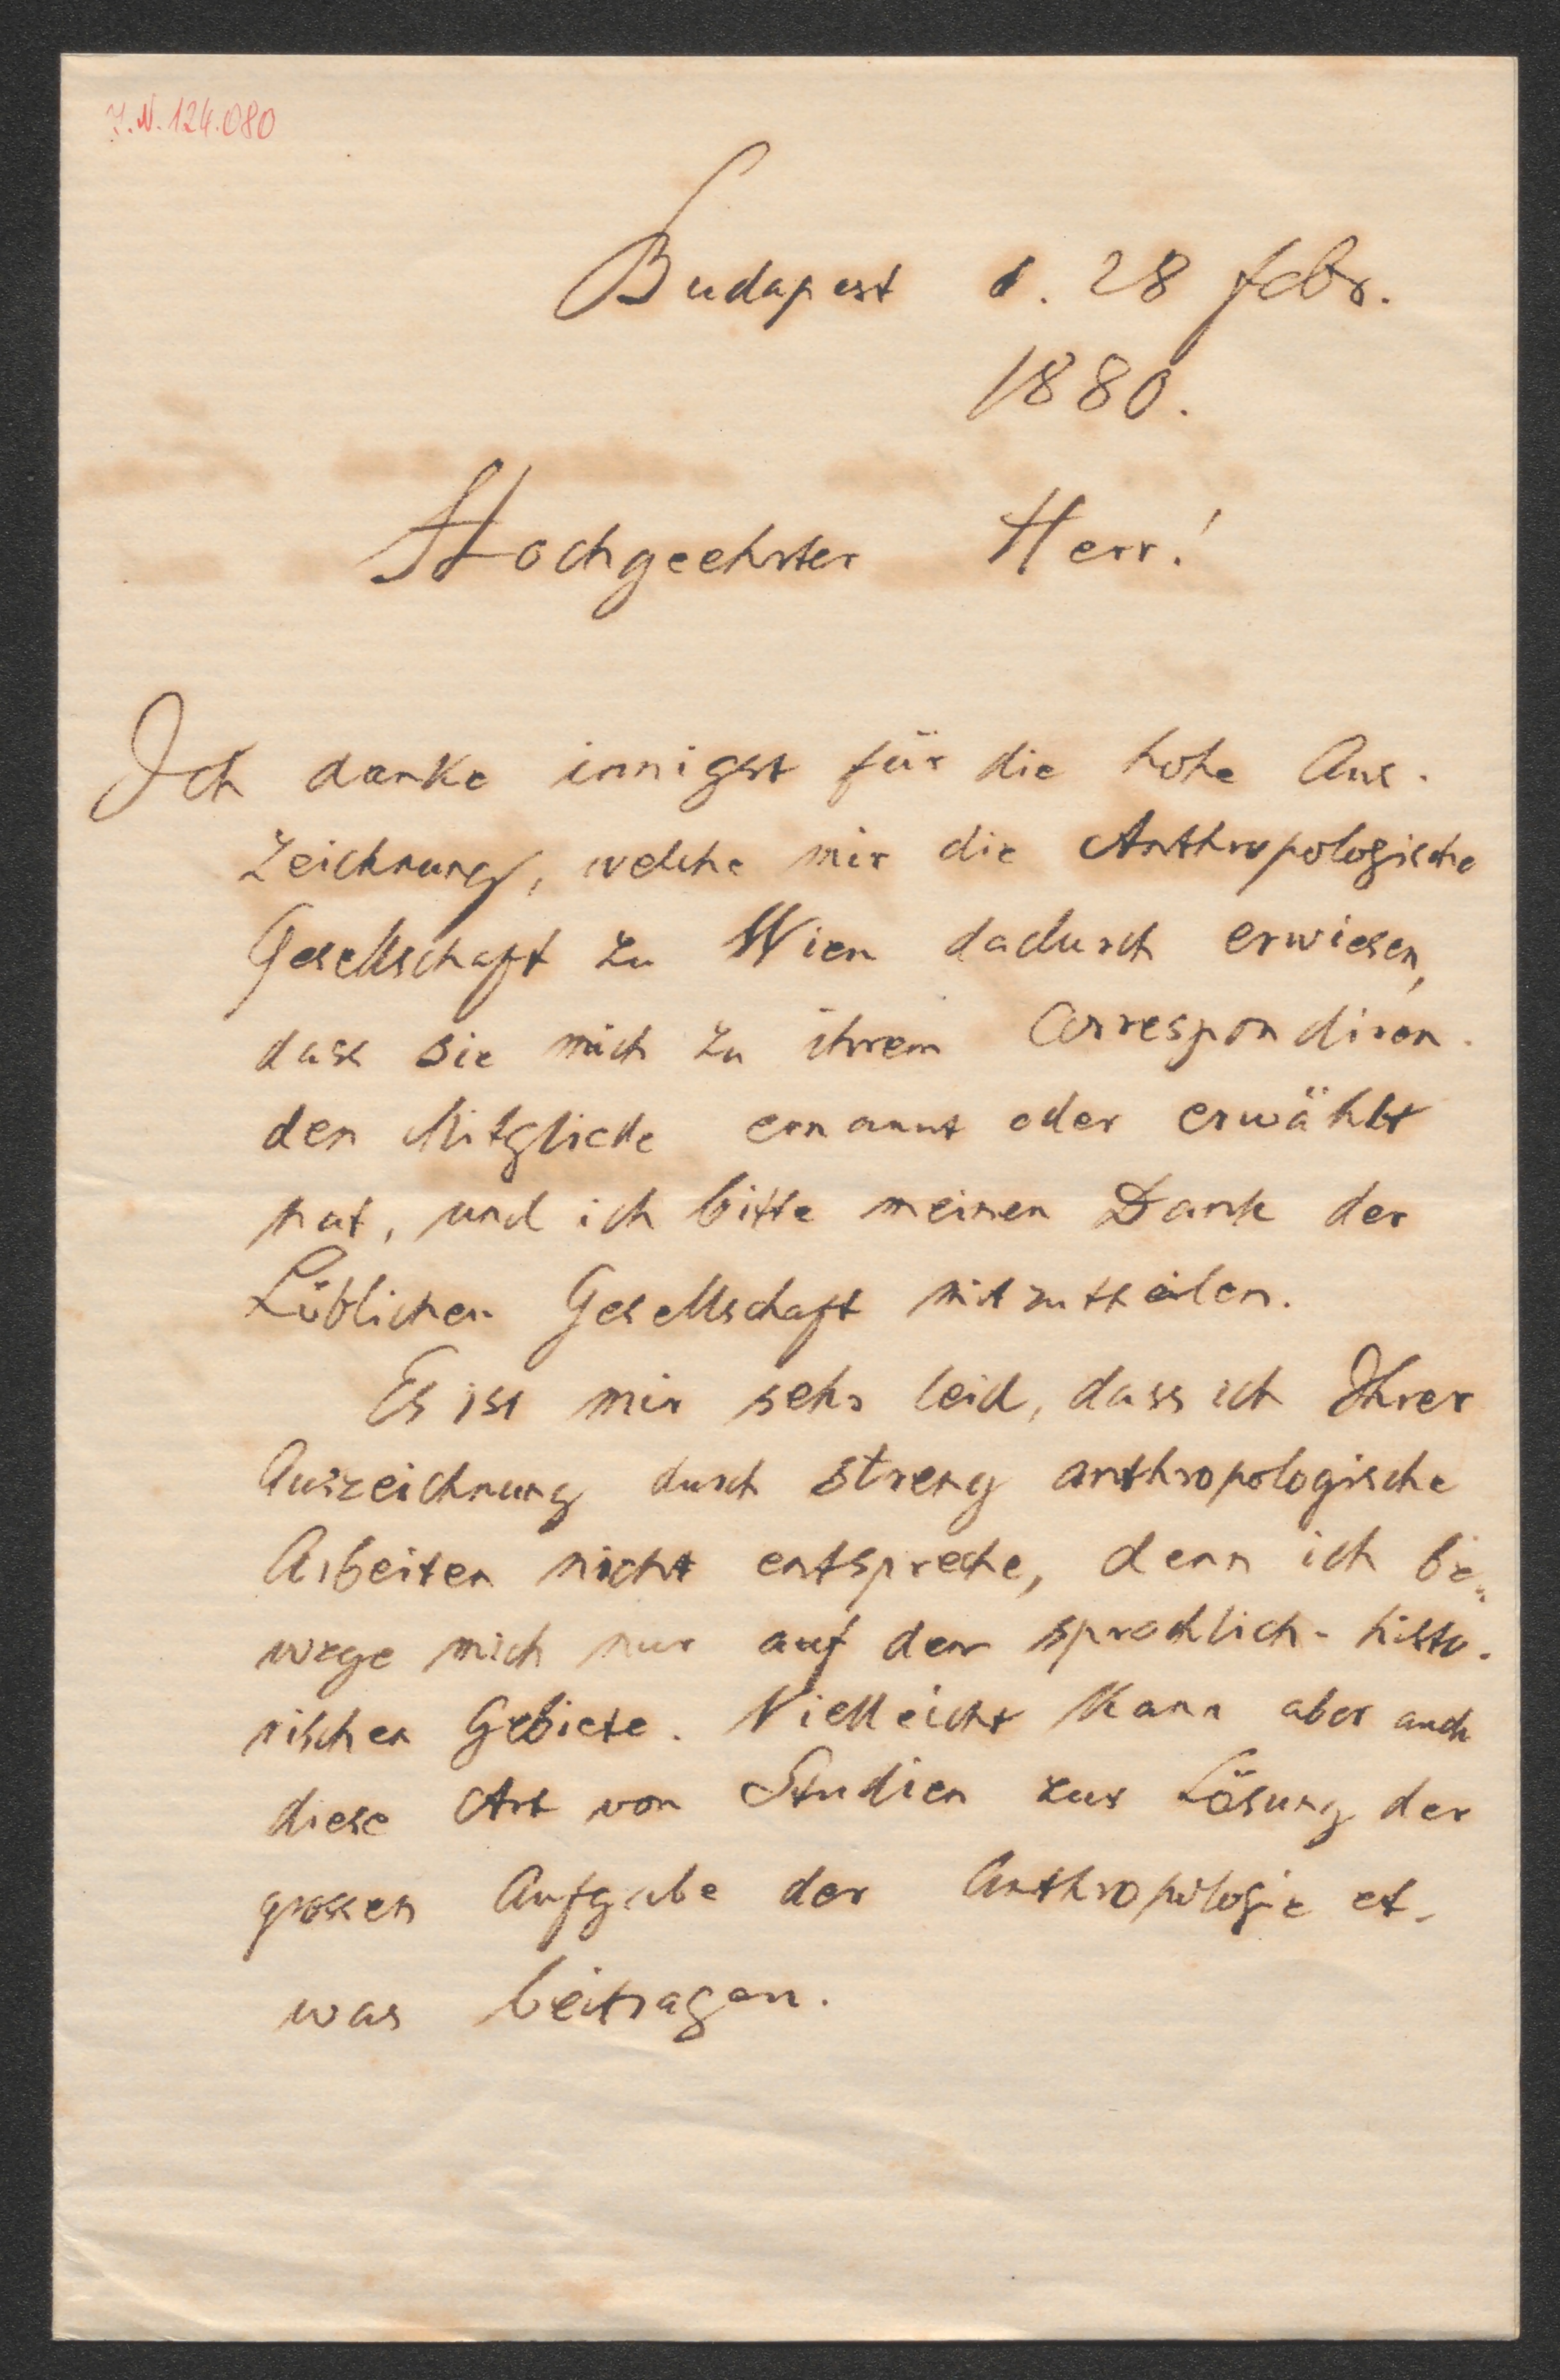 I.N. 124.080
Budapest d. 28 febr.
1880.
Hochgeehrter Herr!
Ich danke innigst für die hohe Aus-
zeichnung, welche mir die Anthropologische
Gesellschaft zu Wien dadurch erwiesen,
dass sie mich zu ihrem Correspondiren-
den Mitgliede ernannt oder erwählt
hat, und ich bitte meinen Dank der
Löblichen Gesellschaft mitzutheilen.
Es ist mir sehr leid, dass ich Ihrer
Auszeichnung durch streng anthropologische
Arbeiten nicht entspreche, denn ich be-
wege mich nur auf dem sprachlich-histo-
rischen Gebiete. Vielleicht kann aber auch
diese Art von Studien zur Lösung der
grossen Aufgabe der Anthropologie et-
was beitragen.